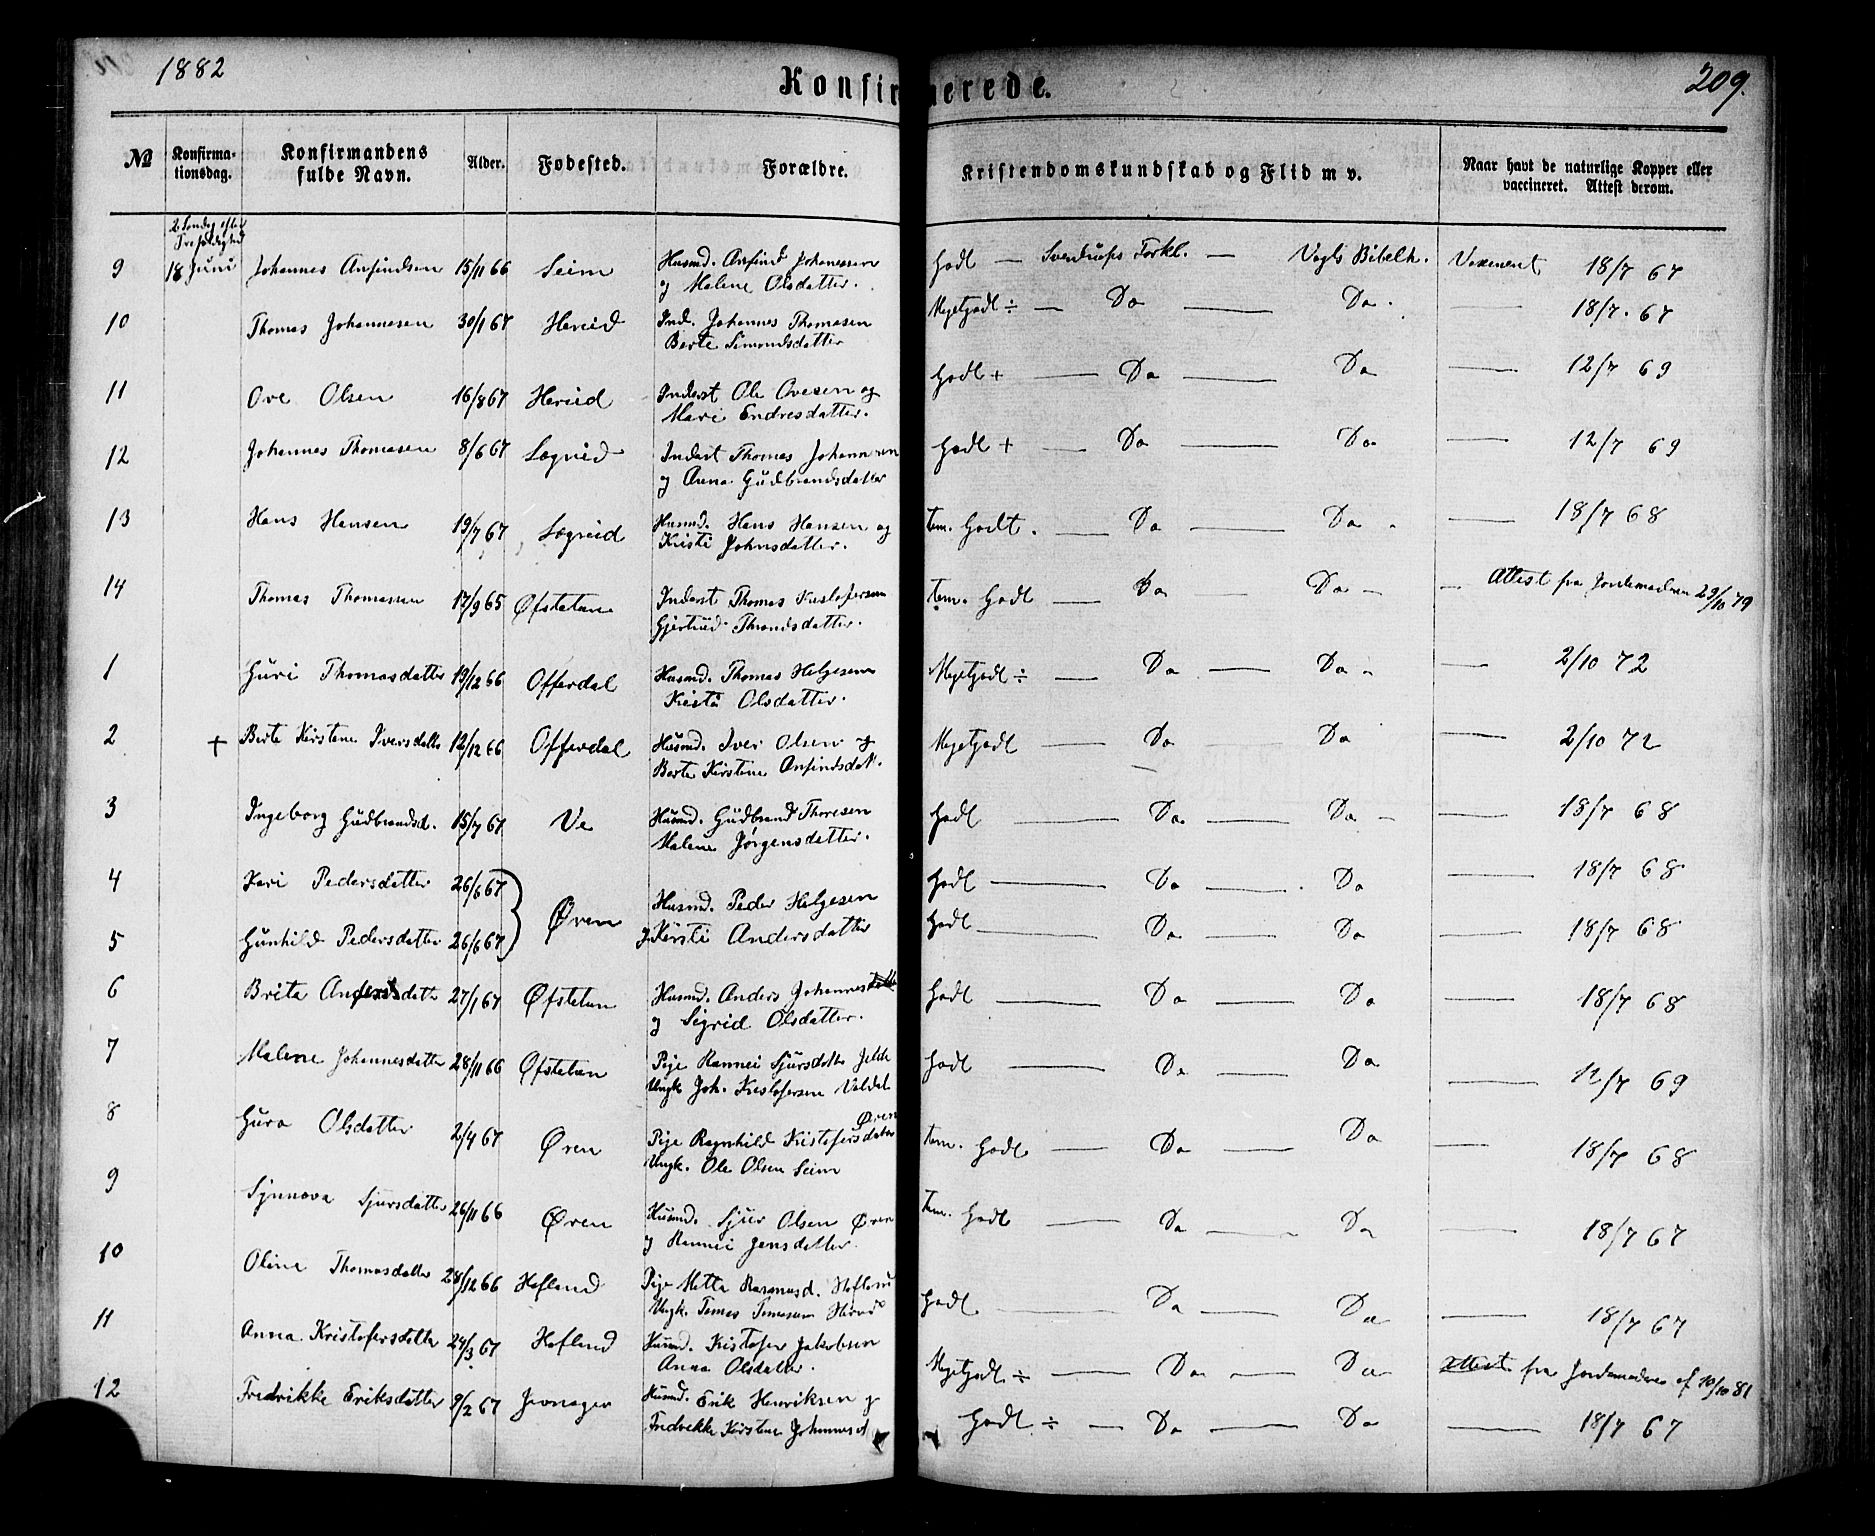 1882
Konfirmerede.
209.
№ Konfirma-tionsdag. Konfirmandens fulde Navn. Alder. Fødested. Forældre. Kristendomskundskab og Flid m v. Naar havt de naturlige Kopper eller vaccineret. Attest derom.
2 Søndag efter
Trefoldighed
9 18 Juni Johannes Anfindsen 15/11 66 Seim Husmd. Anfind Johannesen Godt — Sverdrups Forkl. — Vogts Bibelh. Vaxineret 18/7 67
og Malene Olsdatter.
10 Thomas Johannesen 30/1 67 Hereid Ind. Johannes Thomasen Megetgodt ÷ — Do — Do. — 18/7. 67
Berte Simondsdatter
11 Ove Olsen 16/8 67 Hereid Inderst Ole Ovesen og Godt + — Do — Do — 12/7 69
Mari Endresdatter.
12 Johannes Thomasen 8/6 67 Lægreid Inderst Thomas Johannesen Godt + — Do — Do — 12/7 69
og Anna Gudbrandsdatter
13 Hans Hansen 19/7 67 Lægreid Husmd. Hans Hansen og Tem. Godt. — Do — Do — 18/7 68
Kristi Johnsdatter.
14 Thomas Thomassen 17/9 65 Øfstetun Inderst Thomas Kristofersen Tem. Godt — Do — Do — Attest fra Jordemodren 29/10 79
Gjertrud Throndsdatter.
1 Guri Thomasdatter 19/12 66 Offerdal Husmd. Thomas Helgesen Megetgodt ÷ — Do — Do — 2/10 72
Kristi Olsdatter.
2 + Berte Kirstene Iversdatte 12/12 66 Offerdal Husmd. Iver Olsen og Megetgodt — Do — Do — 2/10 72
Berte Kirstine Anfindsdatt.
3 Ingeborg Gudbrandsd. 15/7 67 Ve Husmd. Gudbrand Thoresen Godt — Do — Do — 18/7 68
Malene Jørgensdatter.
4 Kari Pedersdatter 26/6 67 Øren Husmd. Peder Helgesen Godt — Do — Do — 18/7 68
5 Gunhild Pedersdatter 26/6 67 og Kirsti Andersdatter Godt — Do — Do — 18/7 68
6 Brita Andersdatte 27/1 67 Øfstetun Husmd. Anders Johannes Godt — Do — Do — 18/7 68
og Sigrid Olsdatter.
7 Malene Johannesdatter 28/11 66 Øfstetun Pige Rannei Sjursdatte Jelde Godt — Do — Do — 12/7 69
Ungk. Joh. Kristofersen Voldet
8 Gura Olsdatter 2/4 67 Øren Pige Ragnhild Kristofersdatter Øren Tem. Godt — Do — Do — 18/7 68
Ungk. Ole Olsen Seim
9 Synnøva Sjursdatter 26/11 66 Øren Husmd. Sjur Olsen Øren Tem. Godt — Do — Do — 18/7 67
og Rannei Jensdatter.
10 Oline Thomasdatter 28/12 66 Hofland Pige Mette Rasmusd. Hofland Godt — Do — Do — 18/7 67
Ungk. Tomas Tomasen
11 Anna Kristofersdatter 24/3 67 Hofland Husmd. Kristofer Jakobsen Megetgodt ÷ — Do — Do — Attest fra Jordemodren af 10/10 81
Anna Olsdatter.
12 Fredrikke Eriksdatter 9/2 67 Jevnager Husmd. Erik Henriksen og Godt ÷ — Do — Do — 18/7 67
Fredrekke Kirstine Johannesd